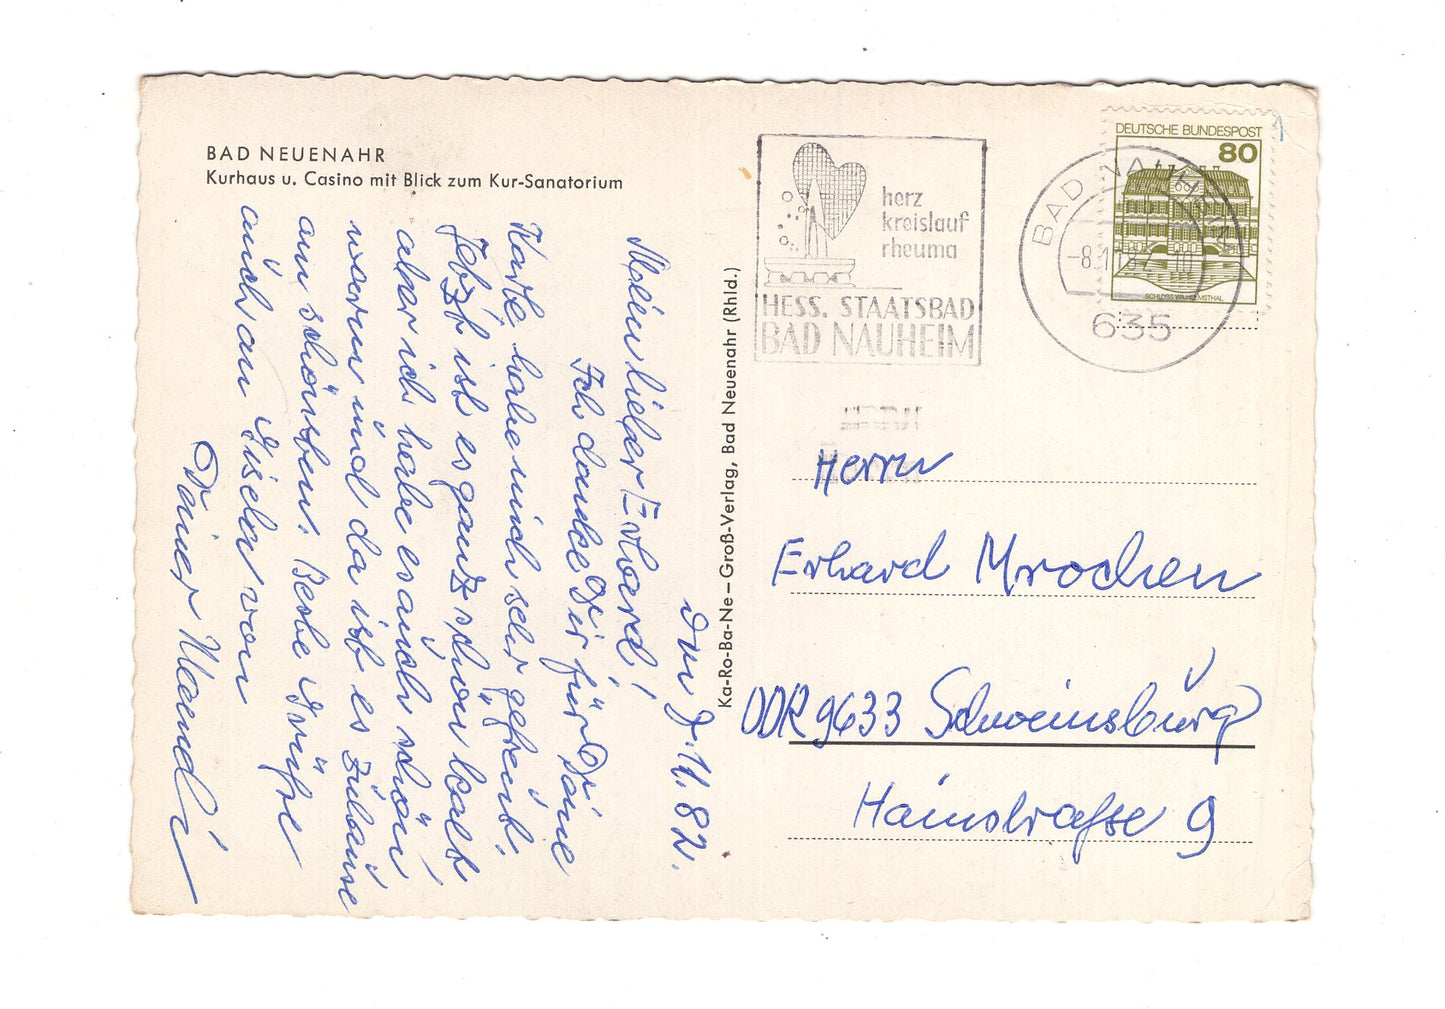 BAD NEUENAHR
Kurhaus u. Casino mit Blick zum Kur-Sanatorium
Den 7.11.82.
Mein lieber Erhard!
Ich danke Dir für Deine
Karte habe mich sehr gefreut.
Jetzt ist es ganz schön kalt
aber ich habe es auch schön
warm und da ist es zuhause
am schönsten. Beste Grüße
auch an Gisela von
Deiner
Ka-Ro-Ba-Ne – Groß-Verlag, Bad Neuenahr (Rhld.)
herz
kreislauf
rheuma
HESS. STAATSBAD
BAD NAUHEIM
BAD NAUHEIM
-8.11.82-10
635
DEUTSCHE BUNDESPOST
80
SCHLOSS WILHELMSTHAL
Herrn
Erhard Mrochen
DDR 9633 Schweinsburg
Hainstraße 9